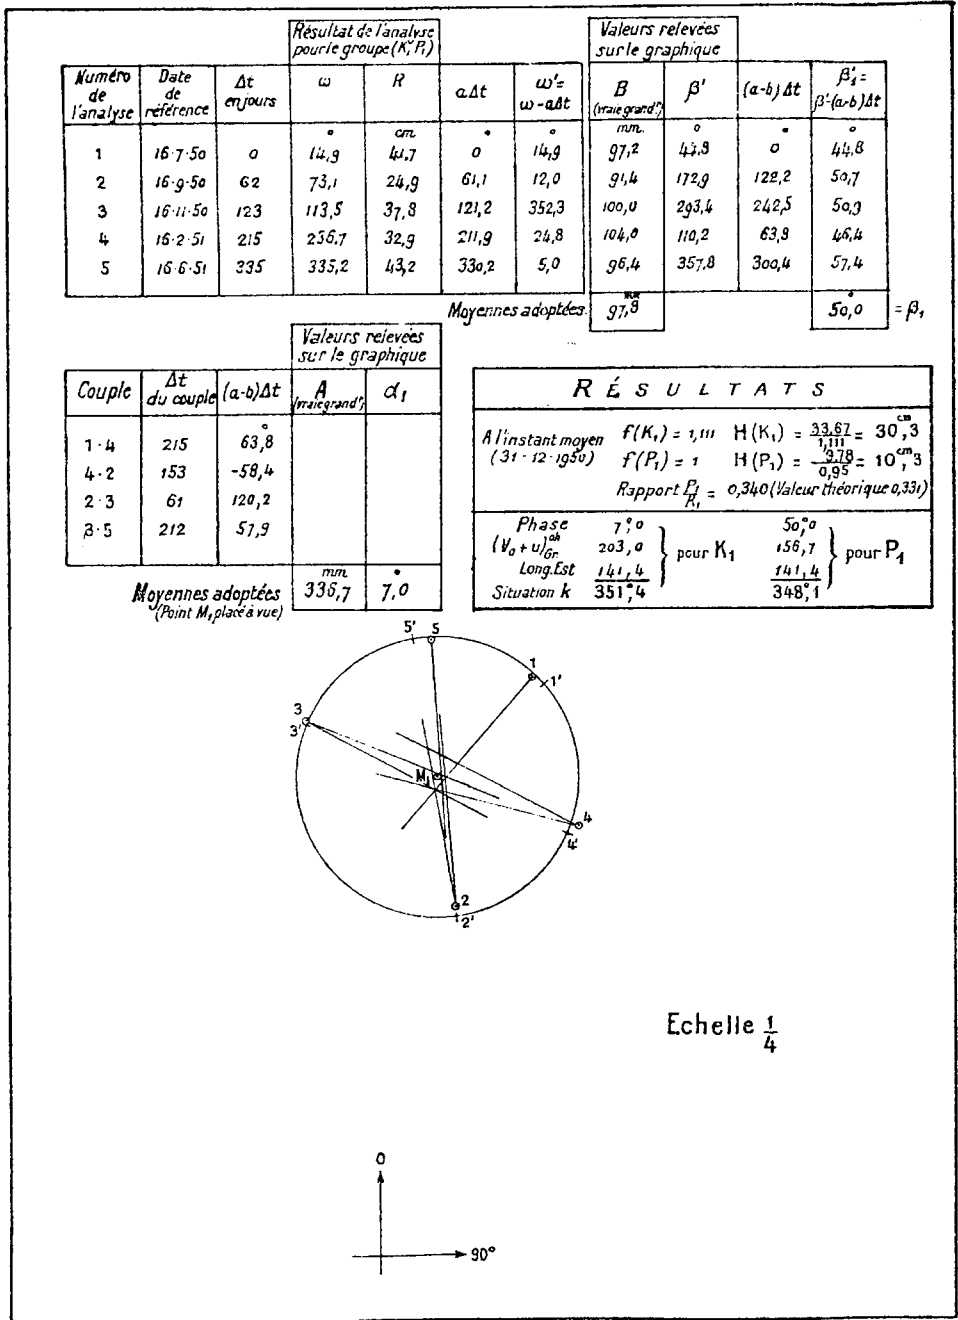 Résultat de l'analyse pour le groupe (K₁, P₁)
Valeurs relevées sur le graphique
Numéro de l'analyse | Date de référence | Δt en jours | ω | R | aΔt | ω'= ω-aΔt | B (vraie grandʳ) | β' | (a-b)Δt | β'₁= β'-(a-b)Δt
° | cm | ° | ° | mm. | ° | ° | °
1 | 16·7·50 | 0 | 14,9 | 41,7 | 0 | 14,9 | 97,2 | 44,8 | 0 | 44,8
2 | 16·9·50 | 62 | 73,1 | 24,9 | 61,1 | 12,0 | 91,4 | 172,9 | 122,2 | 50,7
3 | 16·11·50 | 123 | 113,5 | 37,8 | 121,2 | 352,3 | 100,0 | 293,4 | 242,5 | 50,9
4 | 16·2·51 | 215 | 236,7 | 32,9 | 211,9 | 24,8 | 104,0 | 110,2 | 63,8 | 46,4
5 | 16·6·51 | 335 | 335,2 | 43,2 | 330,2 | 5,0 | 96,4 | 357,8 | 300,4 | 57,4
Moyennes adoptées: | 97,8 mm | 50°,0 = β₁
Valeurs relevées sur le graphique
Couple | Δt du couple | (a-b)Δt | A (vraie grandʳ) | α₁
°
1·4 | 215 | 63,8
4·2 | 153 | -58,4
2·3 | 61 | 120,2
3·5 | 212 | 57,9
Moyennes adoptées | 336,7 mm | 7°,0
(Point M₁ placé à vue)
RÉSULTATS
A l'instant moyen f(K₁) = 1,111 H(K₁) = 33,67/1,111 = 30,3 cm
(31-12-1950) f(P₁) = 1 H(P₁) = 9,78/0,95 = 10,3 cm
Rapport P₁/K₁ = 0,340 (Valeur théorique 0,331)
Phase 7°,0 50°,0
(V₀ + u)₀ₕ Gr. 203,0 } pour K₁ 156,7 } pour P₁
Long. Est 141,4 141,4
Situation k 351°,4 348°,1
5' 5
1
1'
3
3'
M₁
4
4'
2
2'
Echelle 1/4
0
90°